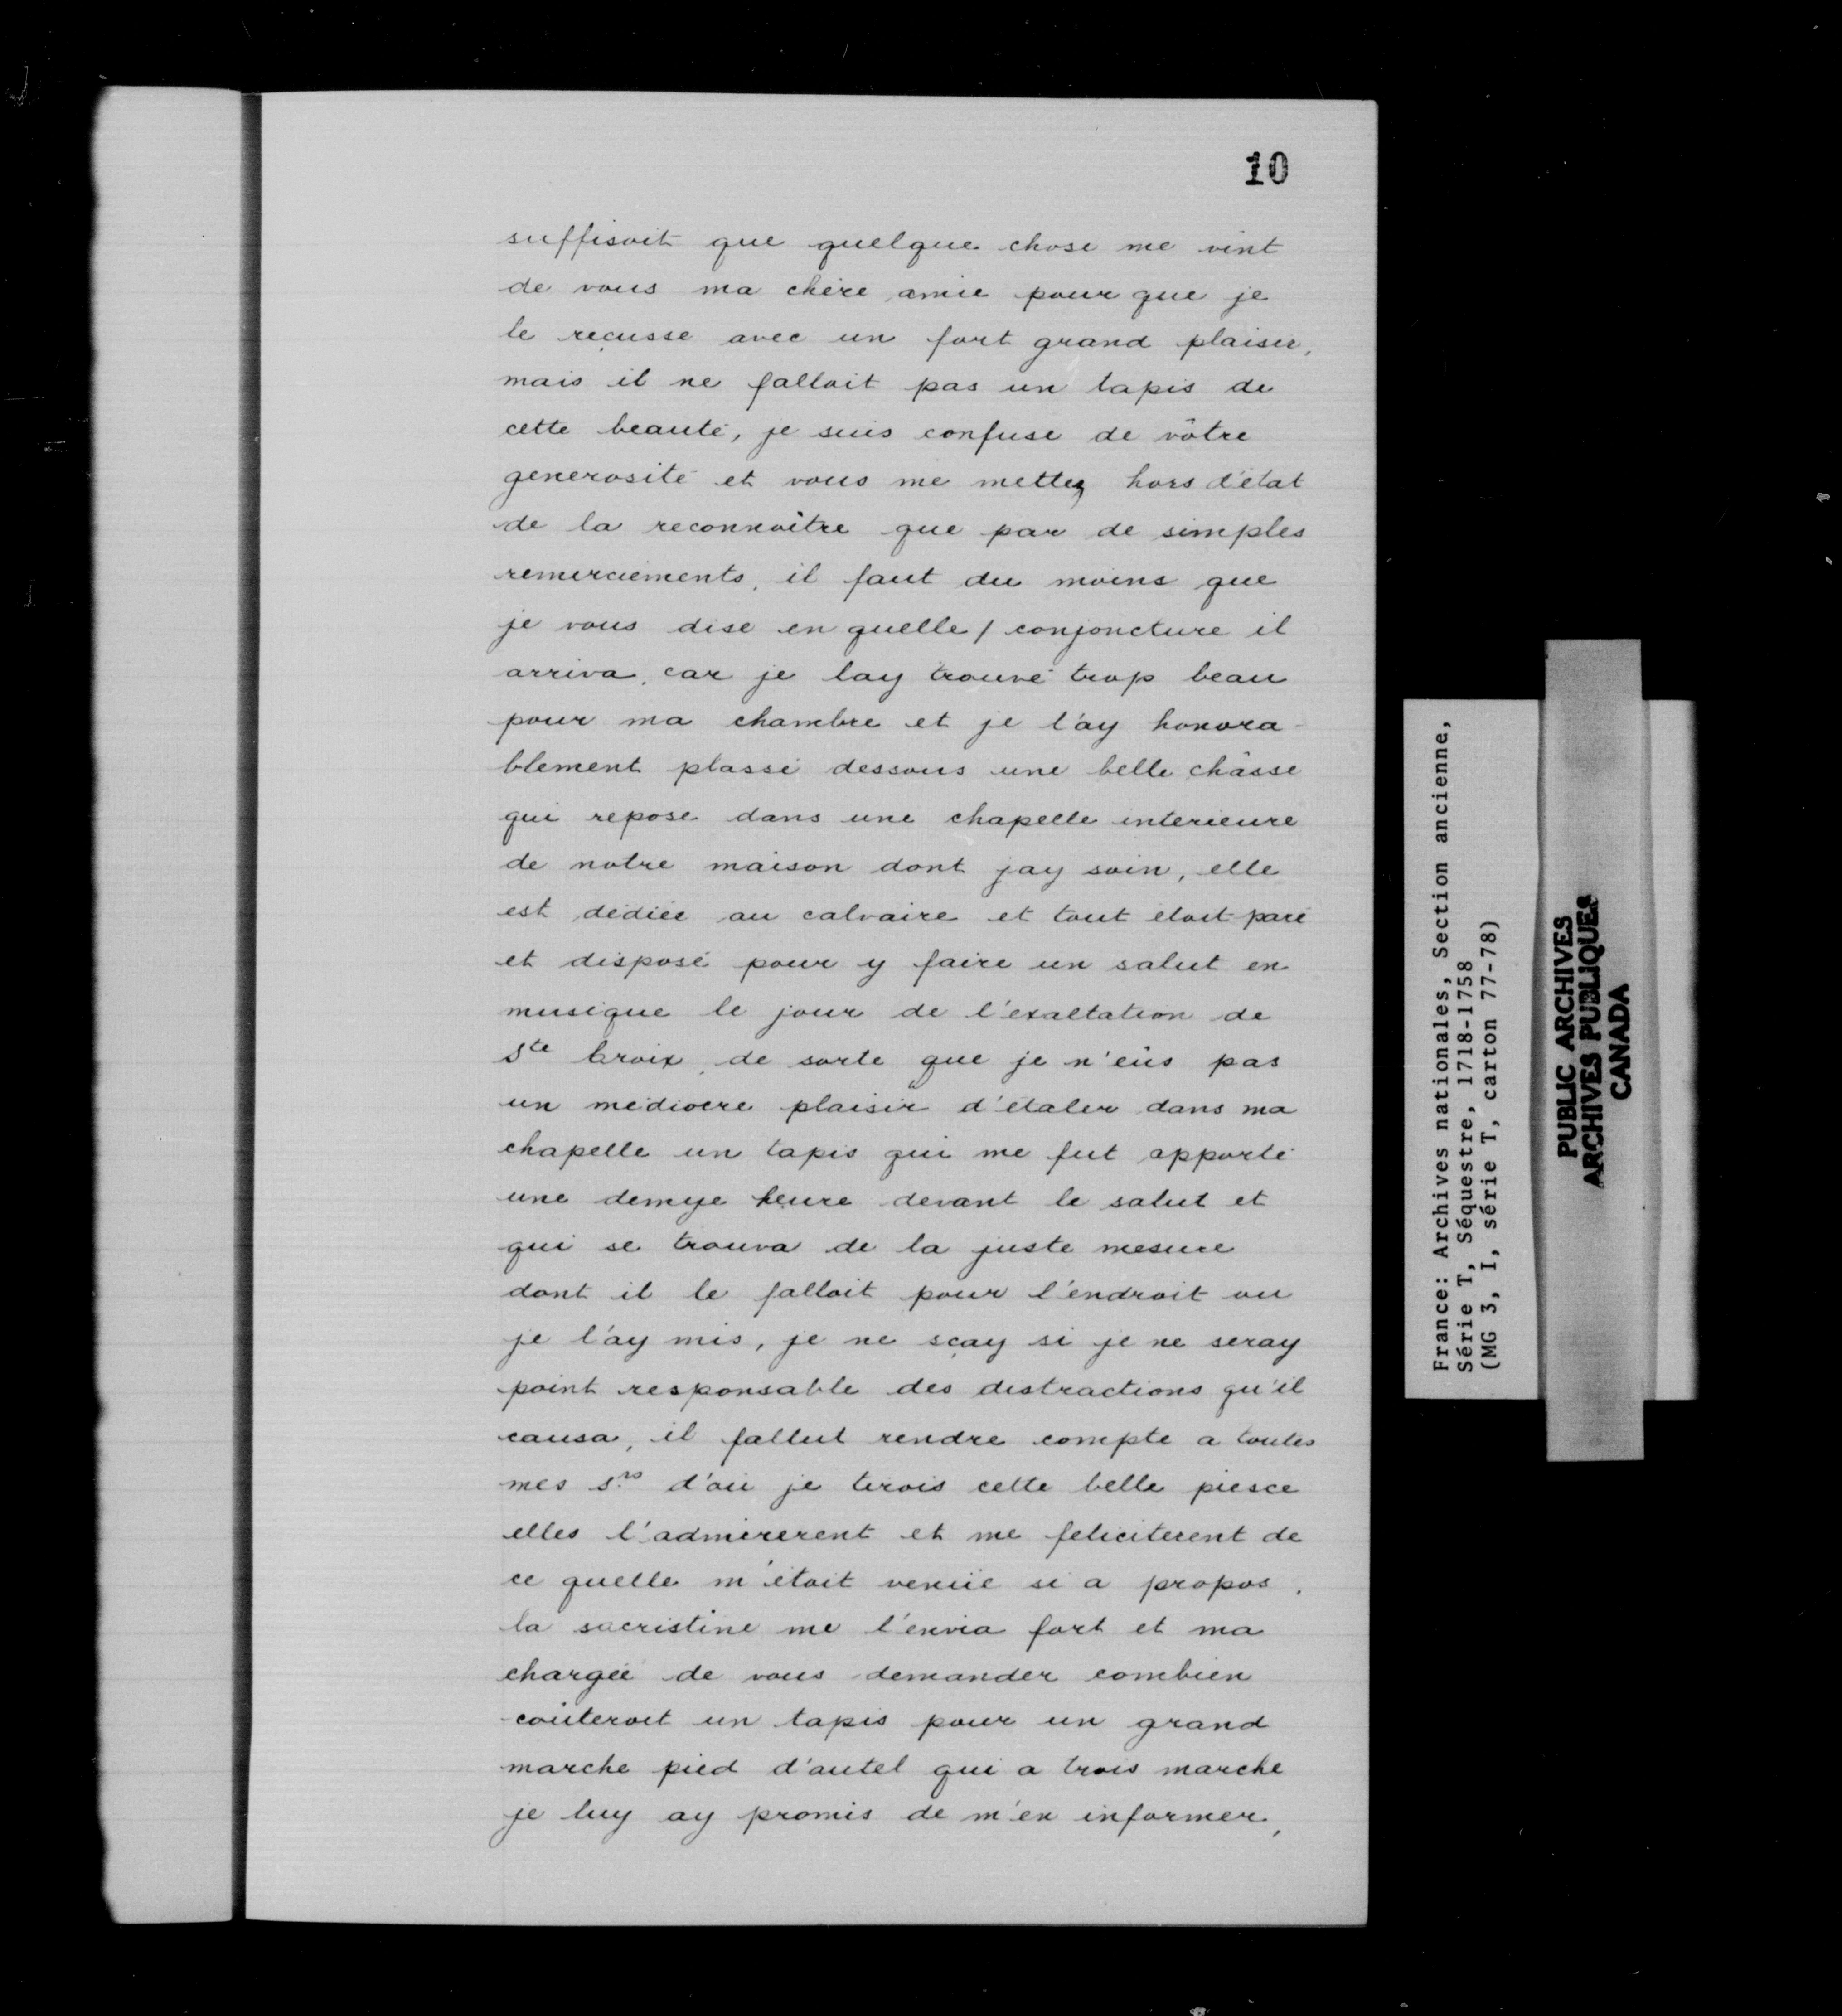 10
suffisoit que quelque chose me vint
de vous ma chère amie pour que je
le reçusse avec un fort grand plaisir,
mais il ne falloit pas un tapis de
cette beauté, je suis confuse de vôtre
generosité et vous me mettez hors d'état
de la reconnoître que par de simples
remerciements, il faut du moins que
je vous dise en quelle / conjoncture il
arriva, car je lay trouvé trop beau
pour ma chambre et je l'ay honora-
blement plassé dessous une belle châsse
qui repose dans une chapelle interieure
de notre maison dont jay soin, elle
est dédiée au calvaire et tout étoit paré
et disposé pour y faire un salut en
musique le jour de l'exaltation de
Ste Croix, de sorte que je n'eûs pas
un médiocre plaisir d'étaler dans ma
chapelle un tapis qui me fut apporté
une demye heure devant le salut et
qui se trouva de la juste mesure
dont il le falloit pour l'endroit ou
je l'ay mis, je ne sçay si je ne seray
point responsable des distractions qu'il
causa, il fallut rendre compte a toutes
mes srs d'où je tirois cette belle piesce
elles l'admirerent et me feliciterent de
ce quelle m'étoit venüe si a propos,
la sacristine me l'envia fort et ma
chargée de vous demander combien
coûteroit un tapis pour un grand
marche pied d'autel qui a trois marche
je luy ay promis de m'en informer,
France: Archives nationales, Section ancienne,
Série T, Séquestre, 1718-1758
(MG 3, I, série T, carton 77-78)
PUBLIC ARCHIVES
ARCHIVES PUBLIQUES
CANADA